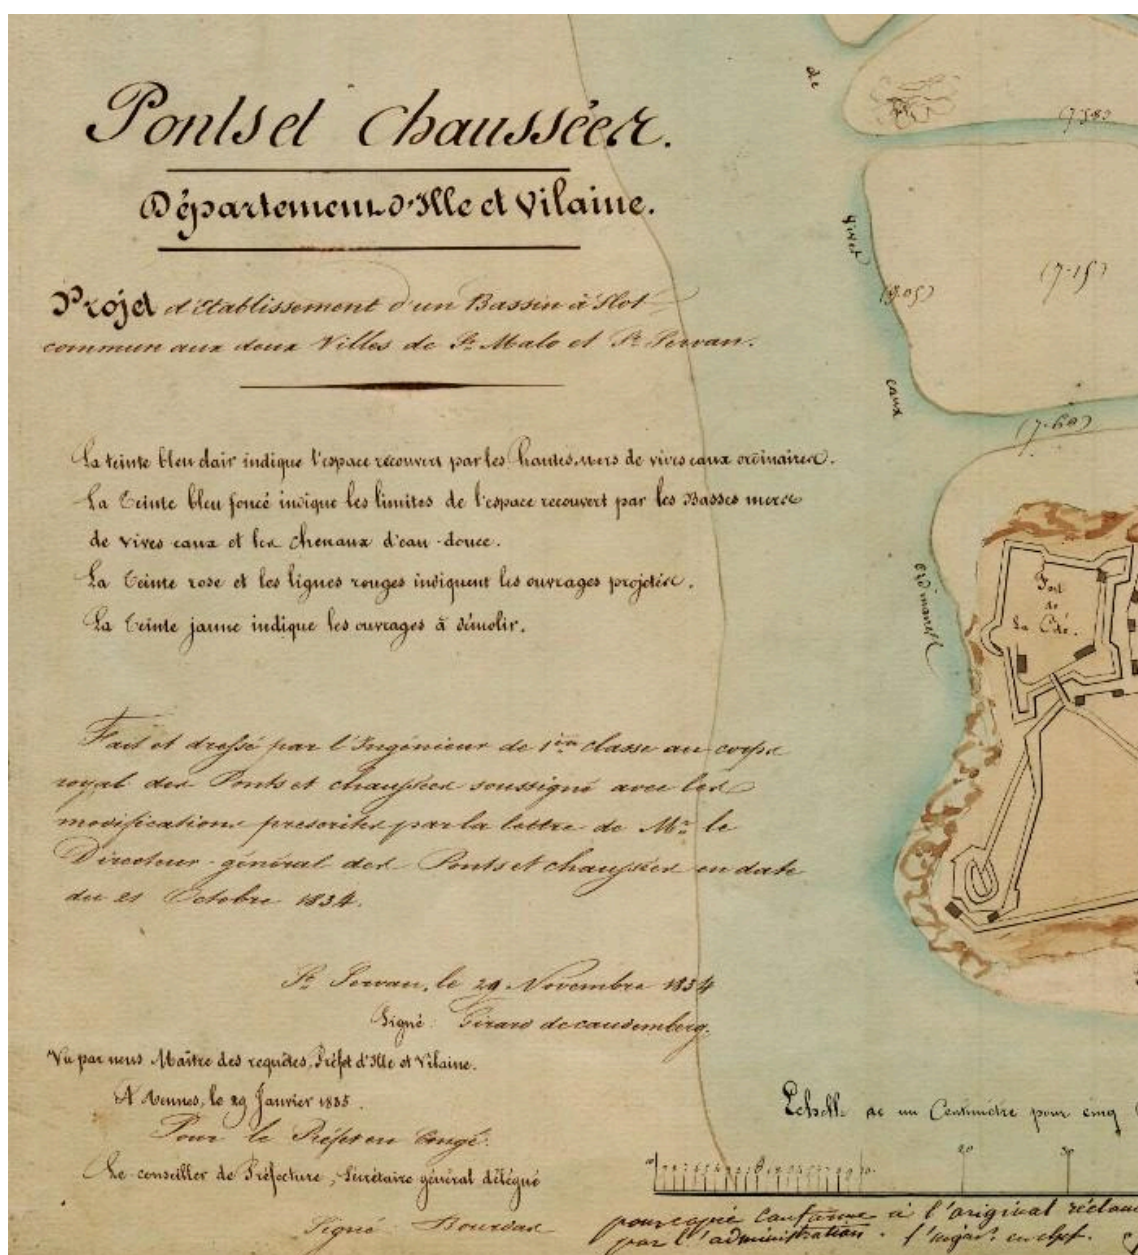 Ponts et Chaussées.
Département d'Ille et Vilaine.
Projet d'Etablissement d'un Bassin à Flot
commun aux deux Villes de St. Malo et St. Servan.
La teinte bleu clair indique l'espace recouvert par les hautes mers de vives eaux ordinaires.
La teinte bleu foncé indique les limites de l'espace recouvert par les Basses mers
de vives eaux et les chenaux d'eau douce.
La teinte rose et les lignes rouges indiquent les ouvrages projetés.
La teinte jaune indique les ouvrages à démolir.
Fait et dressé par l'Ingénieur de 1ère classe au corps
royal des Ponts et chaussées soussigné avec les
modifications prescrites par la lettre de Mr. le
Directeur-général des Ponts et chaussées en date
du 21 Octobre 1834.
St. Servan, le 29 Novembre 1834
Signé: Girard de caudemberg.
Vu par nous Maître des requêtes, Préfet d'Ille et Vilaine.
A Rennes, le 29 Janvier 1835.
Pour le Préfet en Congé.
Le conseiller de Préfecture, Secrétaire général délégué
Signé
de
vives
eaux
ordinaires
(7.58)
(7.15)
(9.05)
(7.60)
Fort
de
La Cité.
Echelle de un Centimètre pour cinq
20
30
pour copie conforme à l'original
par l'administration. l'ingr. en chef.